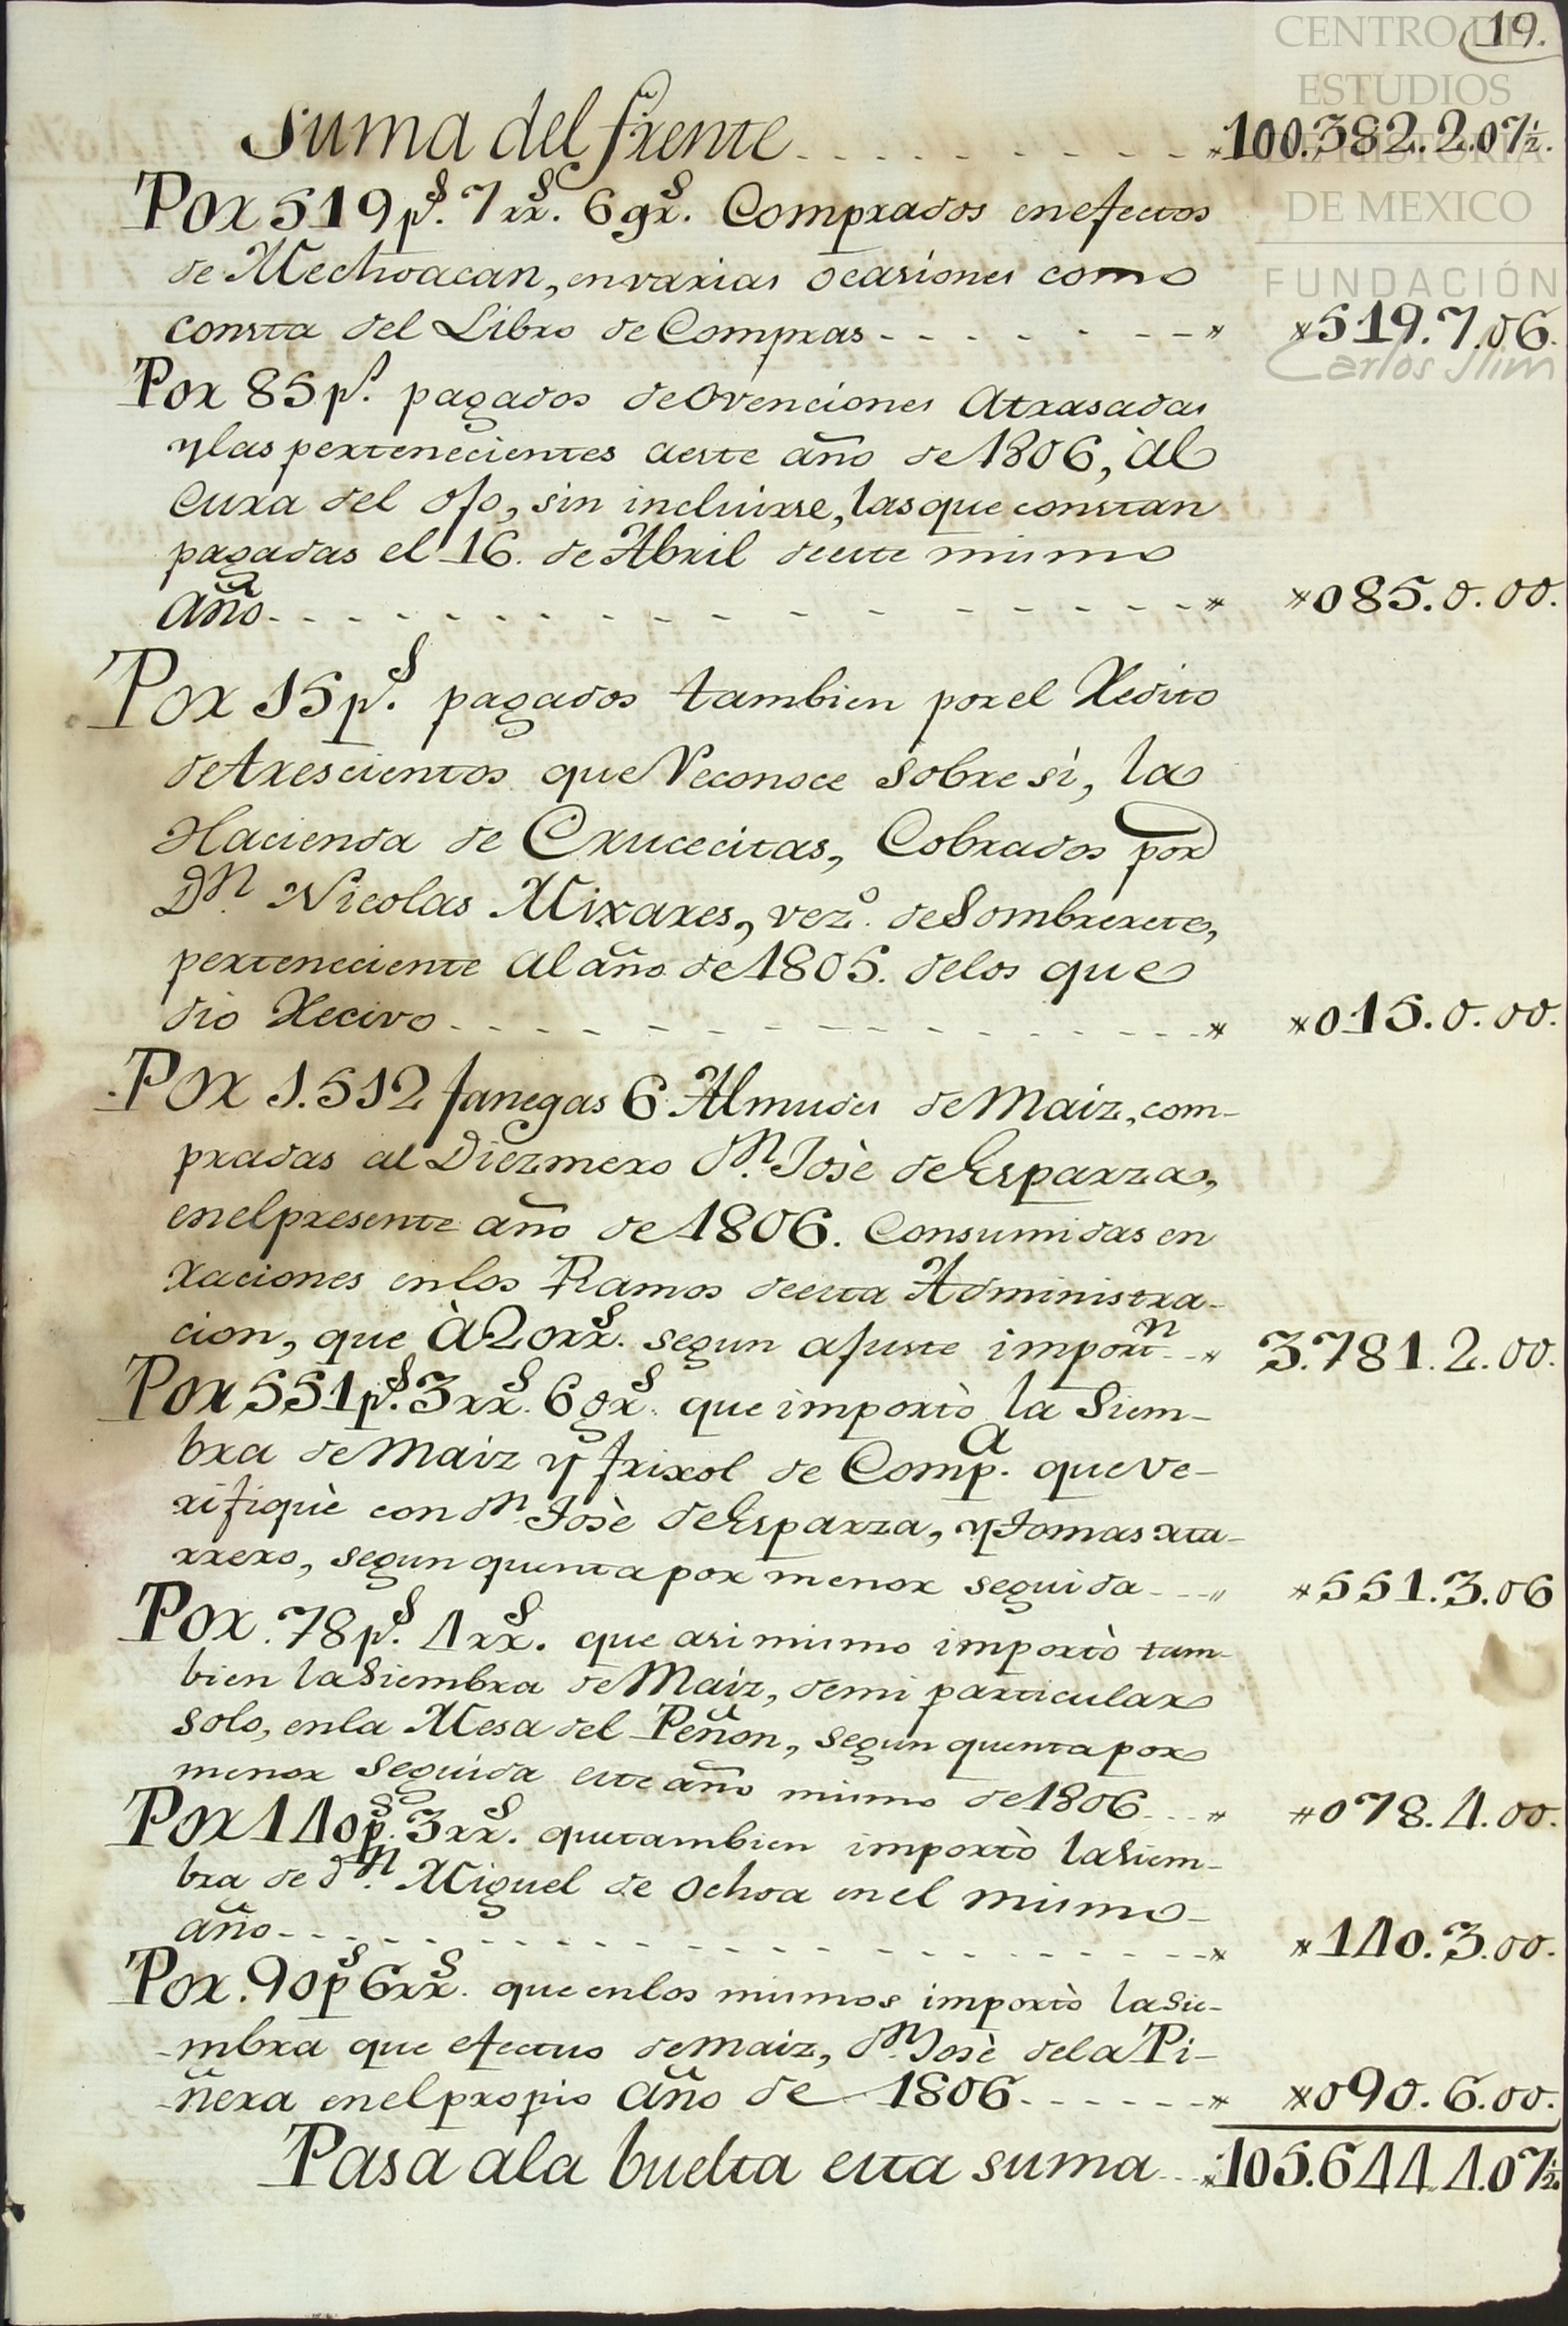 19.
CENTRO DE
ESTUDIOS
DE HISTORIA
DE MEXICO
FUNDACIÓN
Carlos Slim
Suma del frente - - - - - - - - - 100.382.2.07½.
Por 519 p.s 7 rr.s 6 gr.s Comprados en efectos
de Mechoacan, en varias ocasiones como
consta del Libro de Compras - - - - - - - 519.7.06.
Por 85 p.s pagados de Ovenciones Atrasadas
y las pertenecientes a este año de 1806, àl
Cura del ojo, sin incluirse, las que constan
pagadas el 16. de Abril de este mismo
año - - - - - - - - - - - - 085.0.00.
Por 15 p.s pagados tambien por el Redito
de trescientos que Reconoce sobre sì, la
Hacienda de Crucecitas, Cobrados por
D.n Nicolas Mixares, vez.o de Sombrerete,
perteneciente al año de 1805. de los que
dio Recivo - - - - - - - - - - - 015.0.00.
Por 1.512 fanegas 6 Almudes de Maiz, com-
pradas al Diezmero d.n Josè de Esparza,
en el presente año de 1806. Consumidas en
raciones en los Ramos de esta Administra-
cion, que À 20 rr.s segun ajuste import.n - - 3.781.2.00.
Por 551 p.s 3 rr.s 6 gr.s que importò la Siem-
bra de Maiz y frixol de Comp.a que ve-
rifiquè con d.n Josè de Esparza, y Tomas xta-
rrero, segun quenta por menor seguida - - - 551.3.06
Por 78 p.s 4 rr.s que asi mismo importò tam-
bien la Siembra de Maiz, de mi particular
solo, en la Mesa del Peñon, segun quenta por
menor seguida este año mismo de 1806 - - - 078.4.00.
Por 140 p.s 3 rr.s que tambien importò la Siem-
bra de d.n Miguel de Ochoa en el mismo
año - - - - - - - - - - - - 140.3.00.
Por 90 p.s 6 rr.s que en los mismos importò la Sie-
mbra que efectuo de maiz, d.n Josè de la Pi-
ñera en el propio año de 1806 - - - - - - 090.6.00.
Pasa a la buelta esta suma - - 105.644.4.07½.